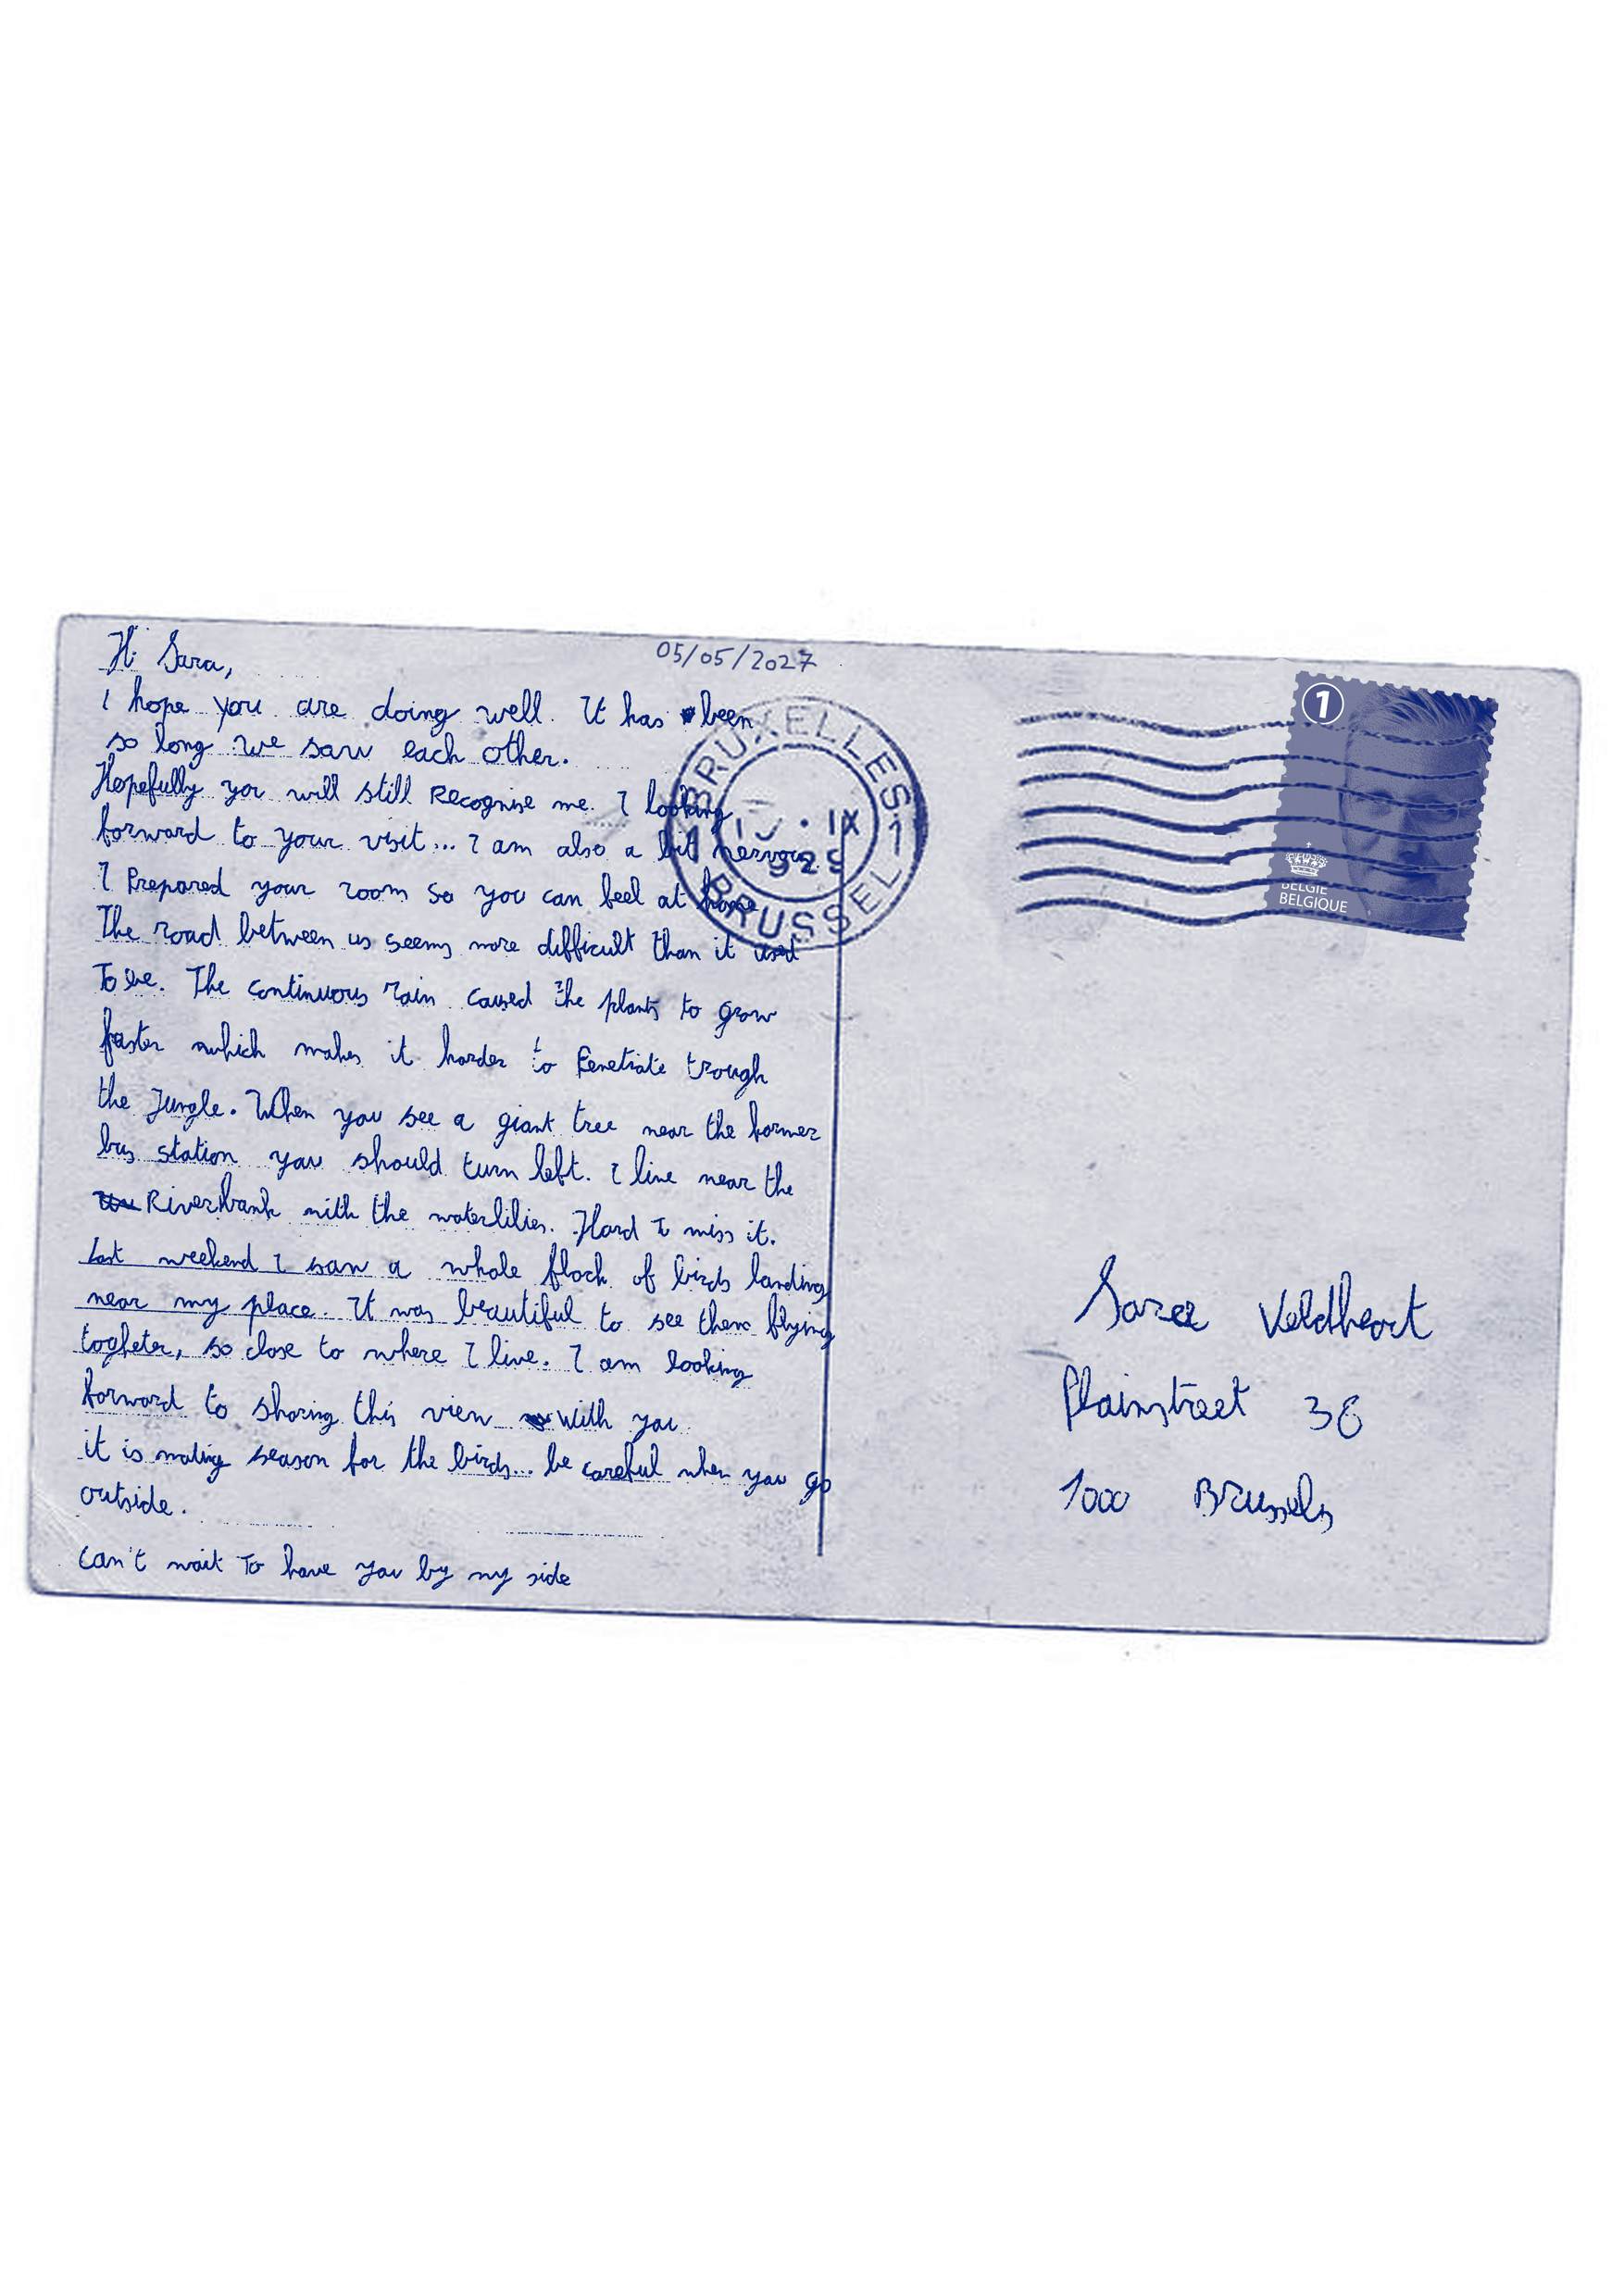 05/05/2027
Hi Sara,
I hope you are doing well. It has been
so long we saw each other.
Hopefully you will still Recognise me. I looking
forward to your visit... I am also a bit nervous.
I Prepared your room so you can feel at home
The road between us seems more difficult than it used
To be. The continuous rain caused the plants to grow
faster which makes it harder to Penetrate trough
the Jungle. When you see a giant tree near the former
bus station you should turn left. I live near the
Riverbank with the waterlilies. Hard to miss it.
Last weekend I saw a whole flock of birds landing
near my place. It was beautiful to see them flying
togheter, so close to where I live. I am looking
forward to sharing this view with you
it is mating season for the birds... be careful when you go
outside.
Can't wait To have you by my side
BRUXELLES
1 1
IX
925
BRUSSEL
1
BELGIE
BELGIQUE
Veldheart
Plainstreet 38
1000 Brussels